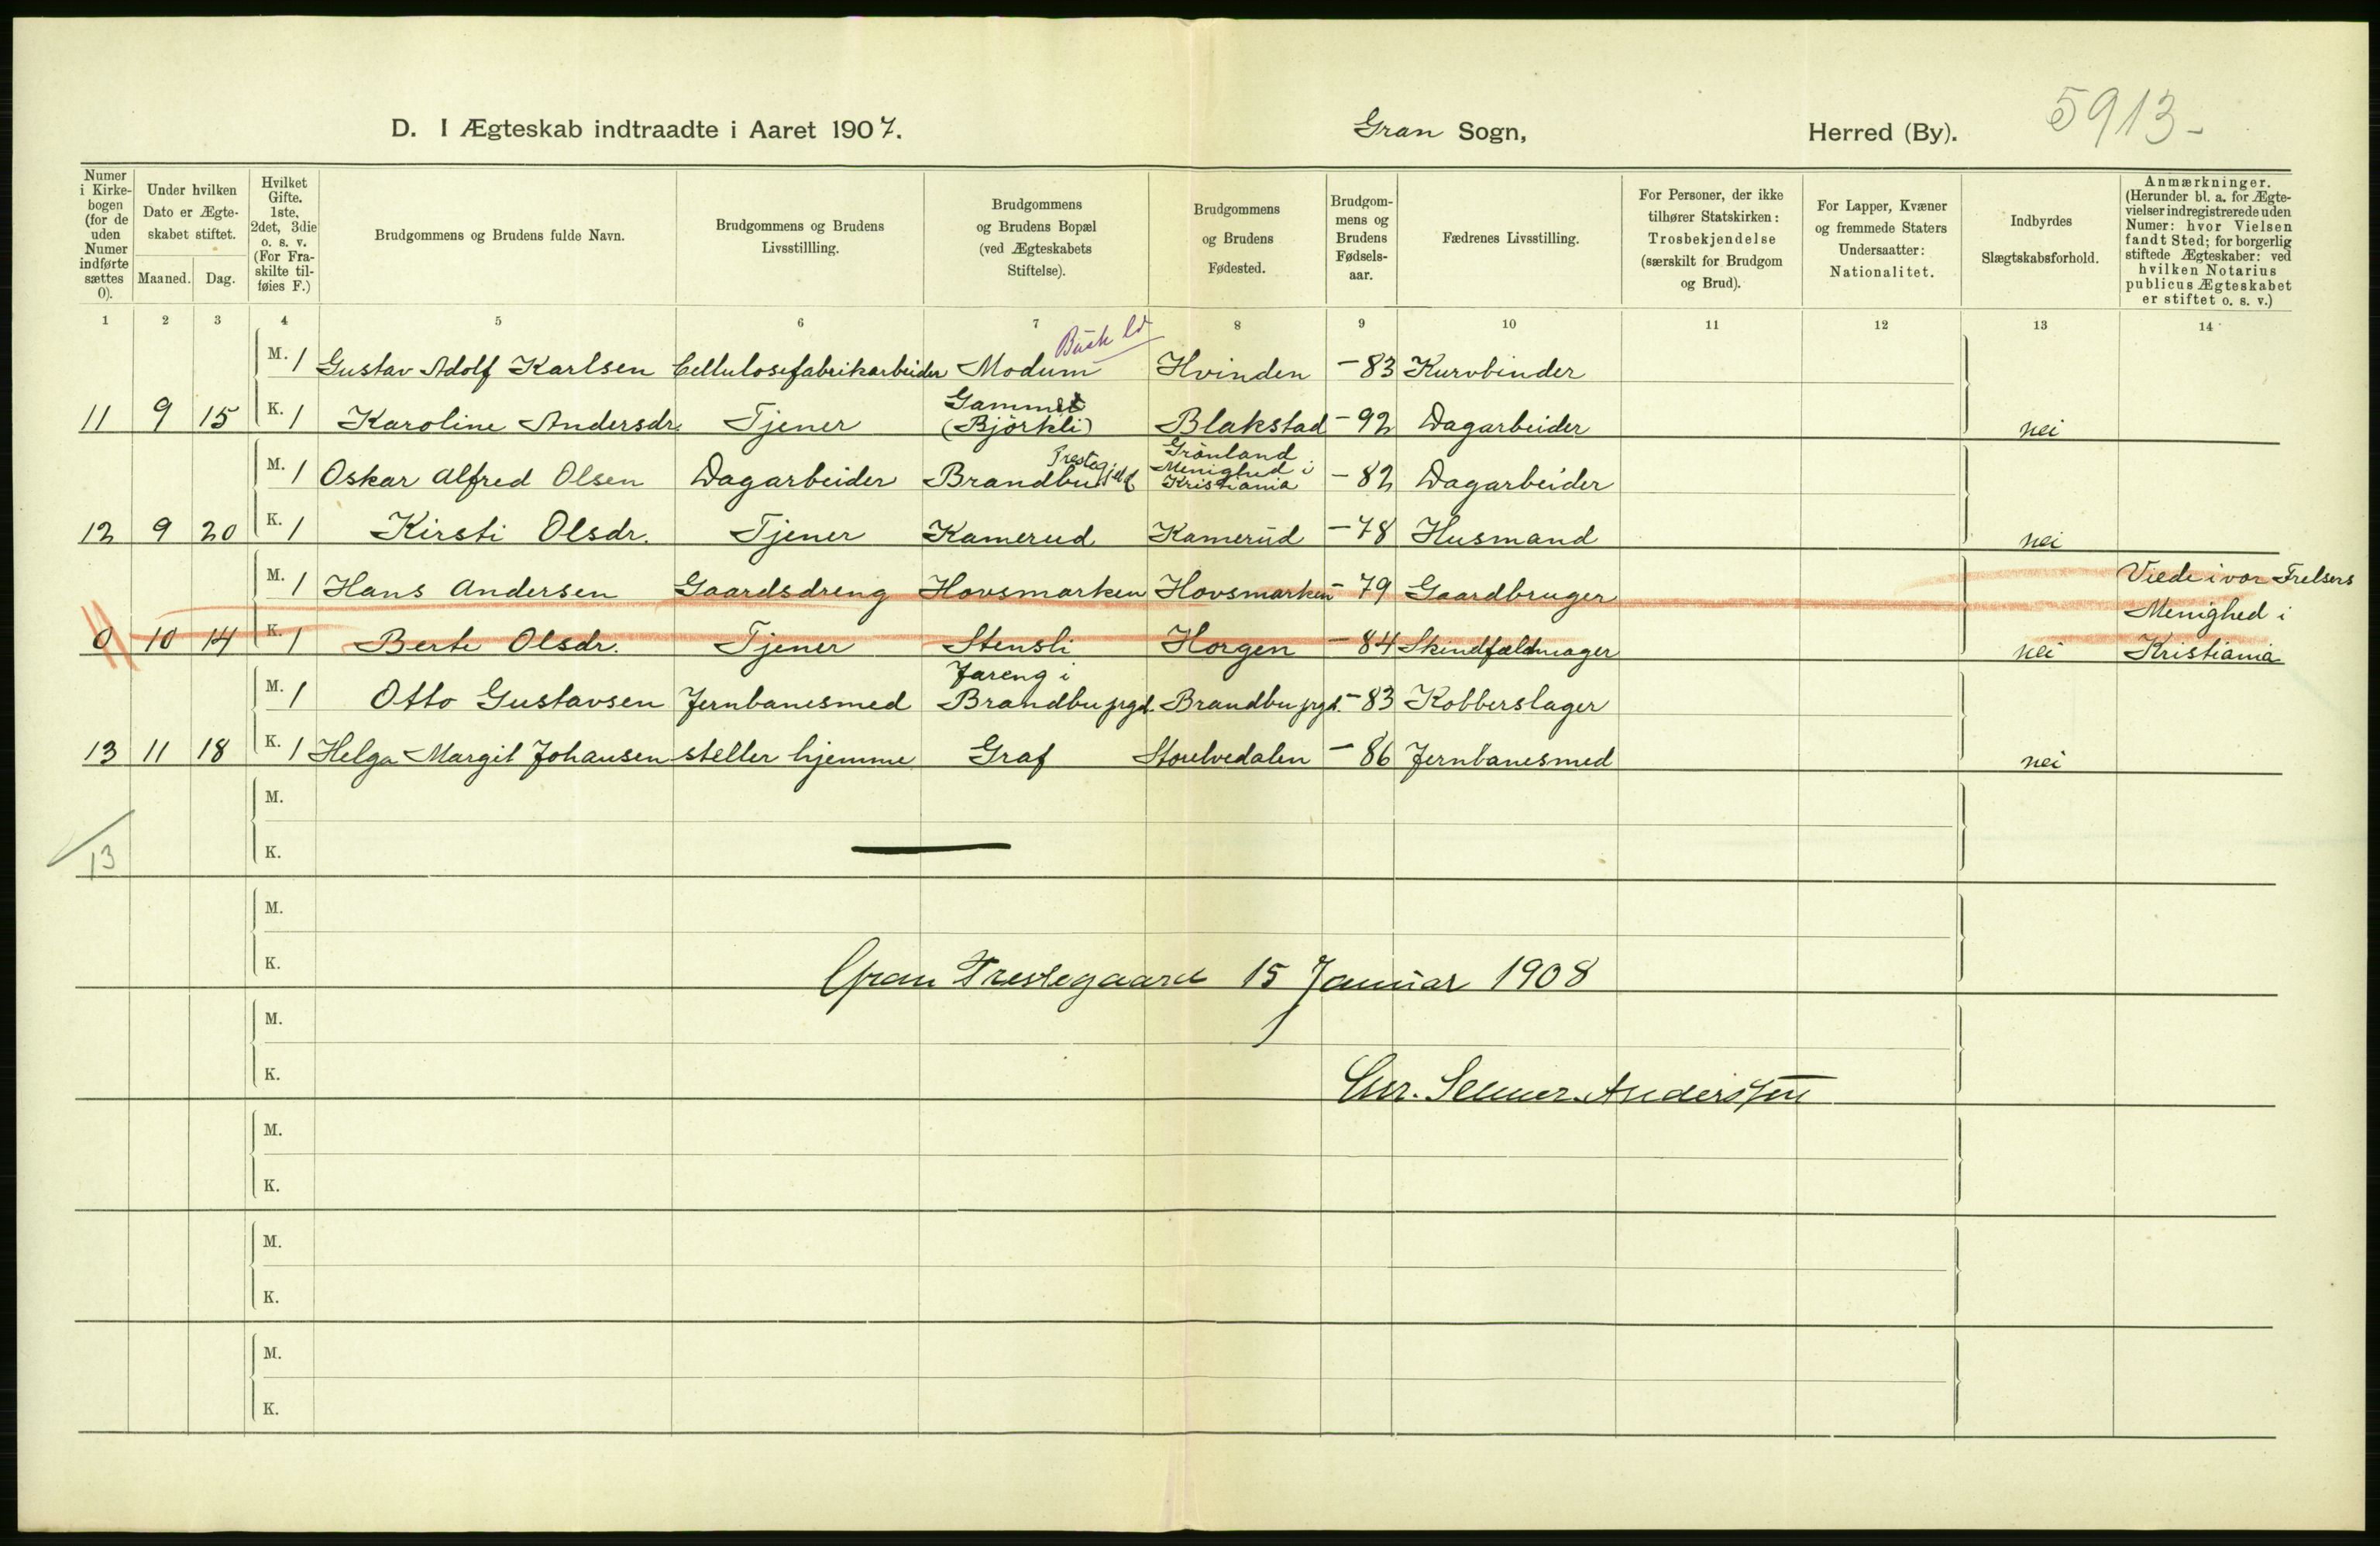 D. I Ægteskab indtraadte i Aaret 1907. Gran Sogn, Herred (By). 5913-
Numer i Kirkebogen (for de uden Numer indførte sættes 0).
Under hvilken Dato er Ægteskabet stiftet.
Maaned. Dag.
Hvilket Gifte. 1ste, 2det, 3die o. s. v. (For Fraskilte tilføies F.)
Brudgommens og Brudens fulde Navn.
Brudgommens og Brudens Livsstillling.
Brudgommens og Brudens Bopæl (ved Ægteskabets Stiftelse).
Brudgommens og Brudens Fødested.
Brudgommens og Brudens Fødselsaar.
Fædrenes Livsstilling.
For Personer, der ikke tilhører Statskirken: Trosbekjendelse (særskilt for Brudgom og Brud).
For Lapper, Kvæner og fremmede Staters Undersaatter: Nationalitet.
Indbyrdes Slægtskabsforhold.
Anmærkninger. (Herunder bl. a. for Ægtevielser indregistrerede uden Numer: hvor Vielsen fandt Sted; for borgerlig stiftede Ægteskaber: ved hvilken Notarius publicus Ægteskabet er stiftet o. s. v.)
1 2 3 4 5 6 7 8 9 10 11 12 13 14
M. 1 Gustav Adolf Karlsen Cellulosefabrikarbeider Modum Hvinden -83 Kurvbinder
11 9 15 K. 1 Karoline Andersdr. Tjener (Björkli) Blakstad -92 Dagarbeider nei
M. 1 Oskar Alfred Olsen Dagarbeider Brandbu Prestegjeld Grönland Menighed i Kristiania -82 Dagarbeider
12 9 20 K. 1 Kirsti Olsdr. Tjener Kamerud Kamerud -78 Husmand nei
M. 1 Hans Andersen Gaardsdreng Hovsmarken Hovsmarken -79 Gaardbruger Viede i vor Frelsers
Menighed i
0 10 14 K. 1 Berte Olsdr. Tjener Stensli Horgen -84 Skindfældmager nei Kristiania
M. 1 Otto Gustavsen Jernbanesmed Jareng i Brandbu prgd. Brandbu prgd. -83 Kobberslager
13 11 18 K. 1 Helga Margit Johansen steller hjemme Graf Storelvedalen -86 Jernbanesmed nei
M.
13 K.
M.
K.
Gran Prestegaard 15 Januar 1908
M.
K.
Chr. Selmer Anderssen
M.
K.
M.
K.
M.
K.